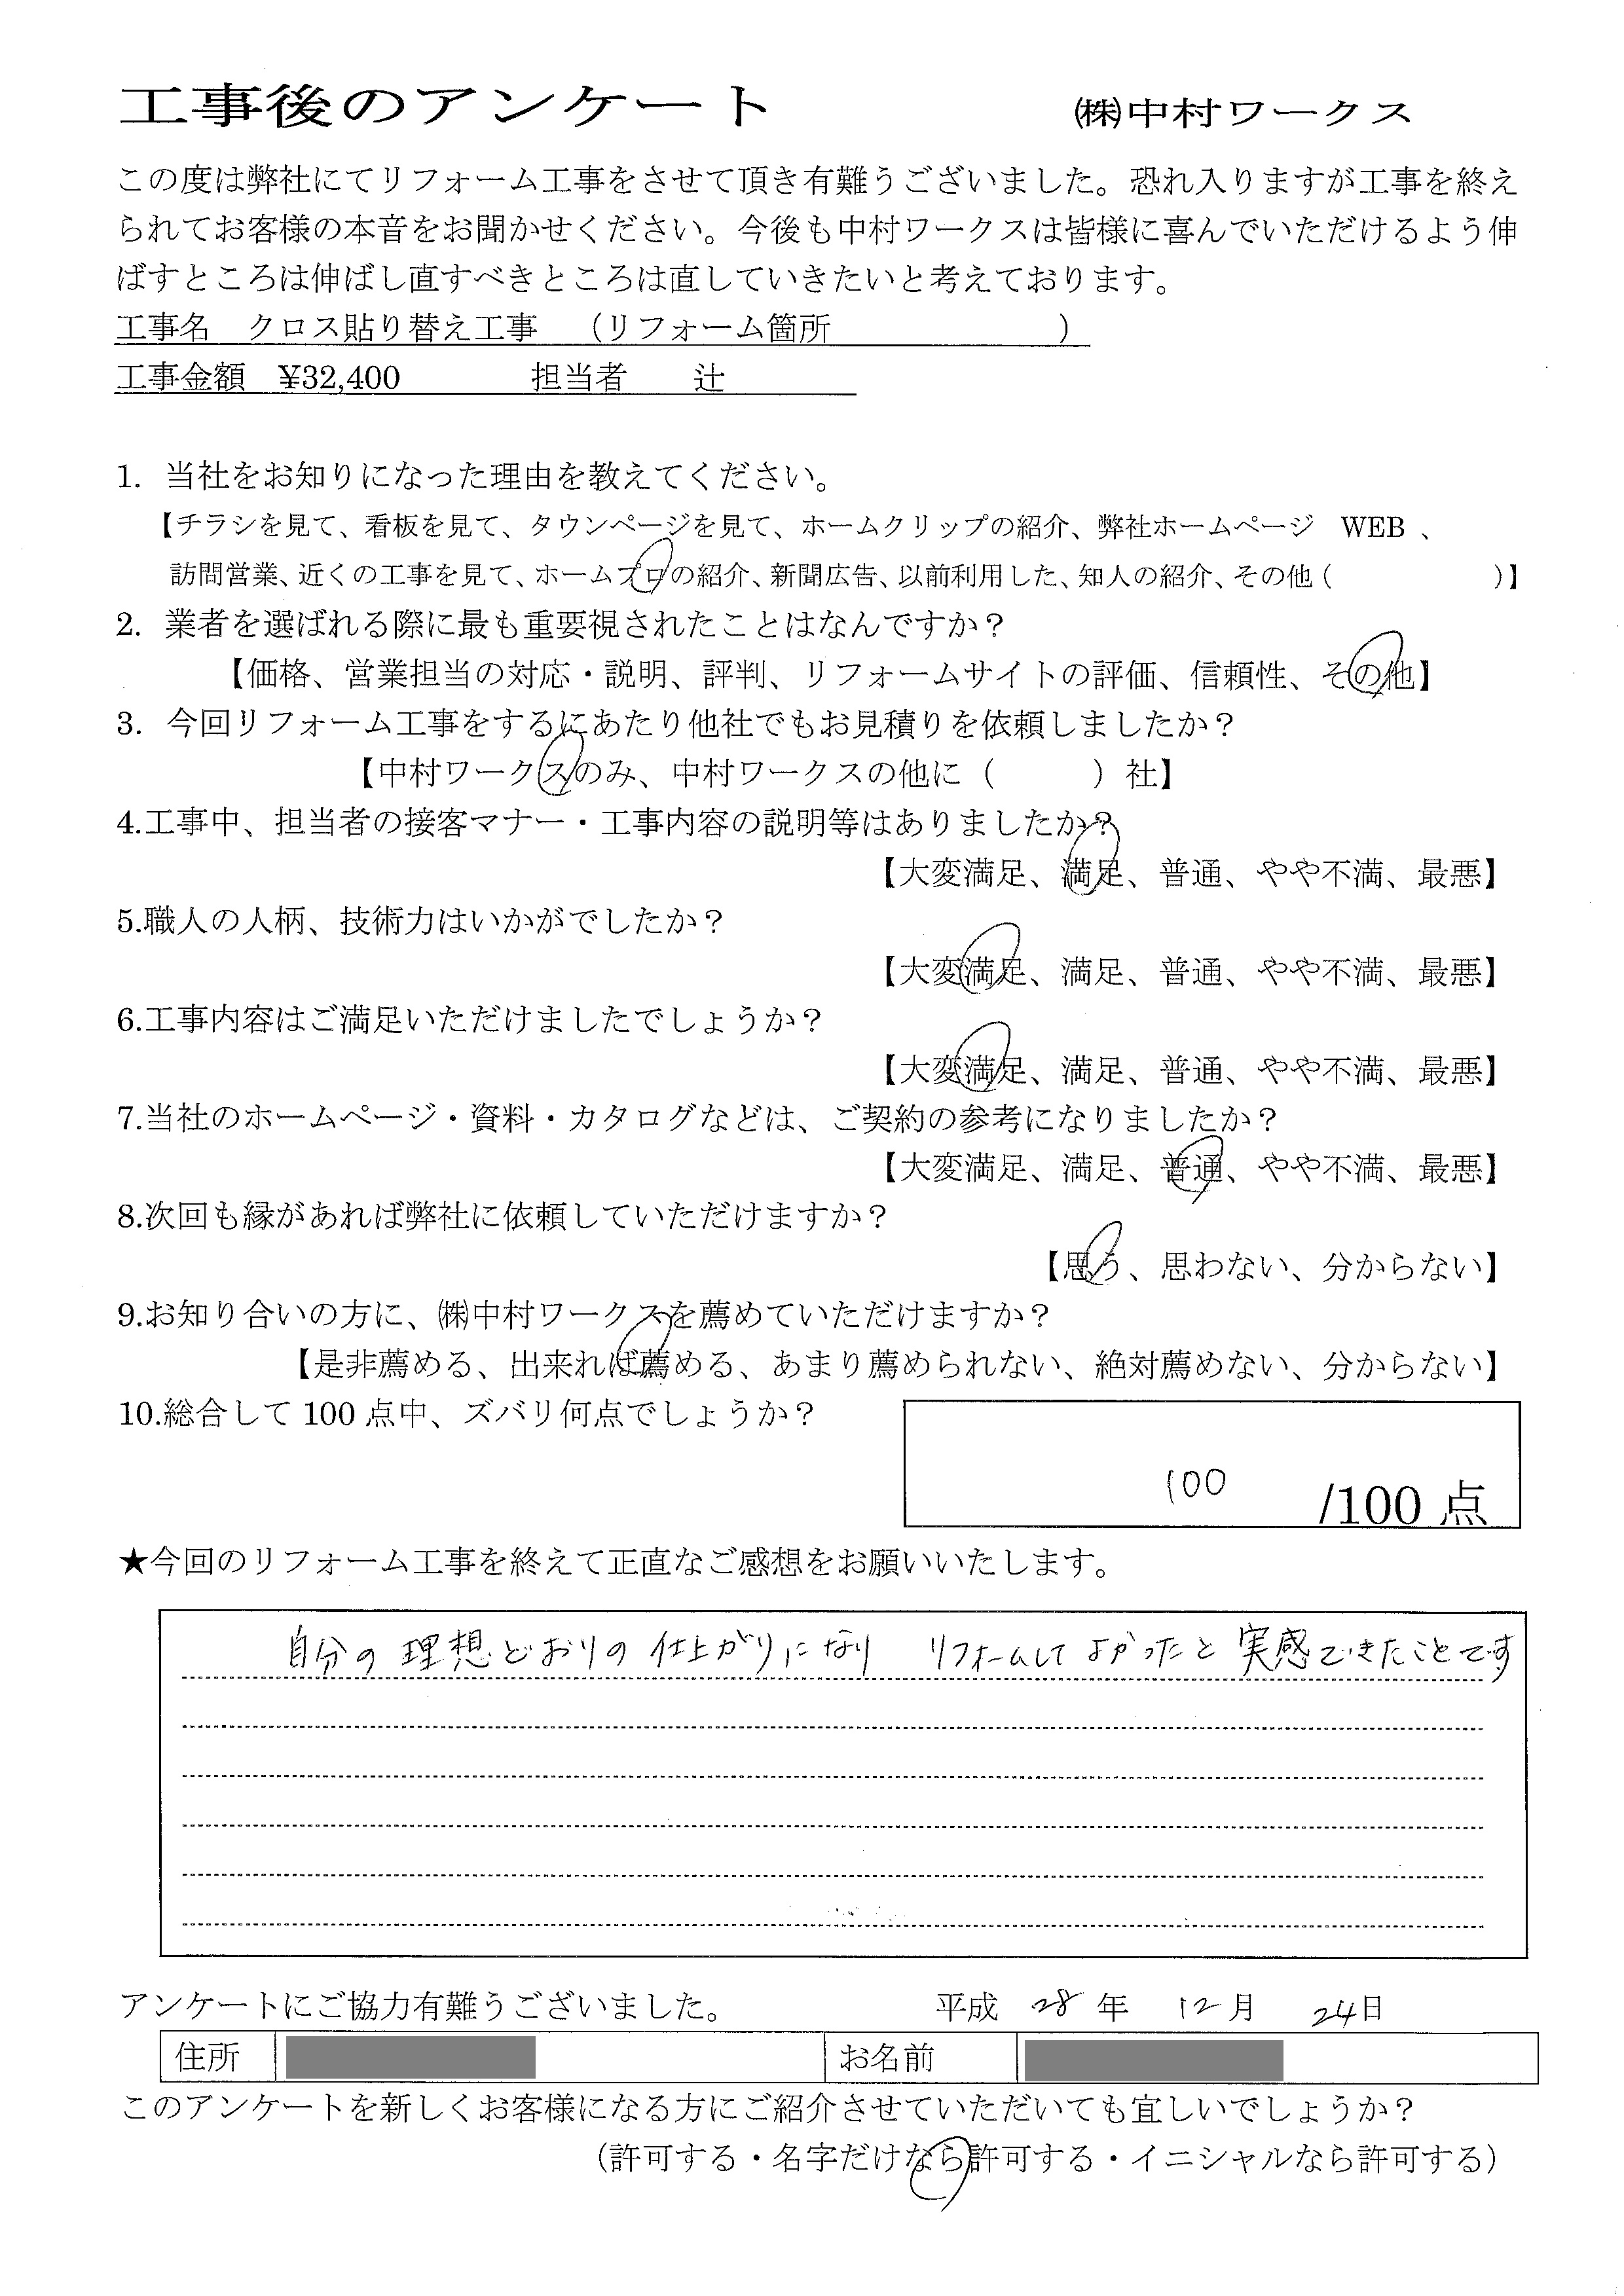 工事後のアンケート　㈱中村ワークス
この度は弊社にてリフォーム工事をさせて頂き有難うございました。恐れ入りますが工事を終え
られてお客様の本音をお聞かせください。今後も中村ワークスは皆様に喜んでいただけるよう伸
ばすところは伸ばし直すべきところは直していきたいと考えております。
工事名　クロス貼り替え工事　（リフォーム箇所　　　　　　　）
工事金額　¥32,400　　　　担当者　　辻
1. 当社をお知りになった理由を教えてください。
【チラシを見て、看板を見て、タウンページを見て、ホームクリップの紹介、弊社ホームページ　WEB 、
訪問営業、近くの工事を見て、ホームプロの紹介、新聞広告、以前利用した、知人の紹介、その他（　　　　　　）】
2. 業者を選ばれる際に最も重要視されたことはなんですか？
【価格、営業担当の対応・説明、評判、リフォームサイトの評価、信頼性、その他】
3. 今回リフォーム工事をするにあたり他社でもお見積りを依頼しましたか？
【中村ワークスのみ、中村ワークスの他に（　　　）社】
4.工事中、担当者の接客マナー・工事内容の説明等はありましたか？
【大変満足、満足、普通、やや不満、最悪】
5.職人の人柄、技術力はいかがでしたか？
【大変満足、満足、普通、やや不満、最悪】
6.工事内容はご満足いただけましたでしょうか？
【大変満足、満足、普通、やや不満、最悪】
7.当社のホームページ・資料・カタログなどは、ご契約の参考になりましたか？
【大変満足、満足、普通、やや不満、最悪】
8.次回も縁があれば弊社に依頼していただけますか？
【思う、思わない、分からない】
9.お知り合いの方に、㈱中村ワークスを薦めていただけますか？
【是非薦める、出来れば薦める、あまり薦められない、絶対薦めない、分からない】
10.総合して 100 点中、ズバリ何点でしょうか？
100　/100 点
★今回のリフォーム工事を終えて正直なご感想をお願いいたします。
自分の理想どおりの仕上がりになり　リフォームしてよかったと実感できたことです
アンケートにご協力有難うございました。　平成 28 年 12 月 24日
住所　お名前
このアンケートを新しくお客様になる方にご紹介させていただいても宜しいでしょうか？
（許可する・名字だけなら許可する・イニシャルなら許可する）